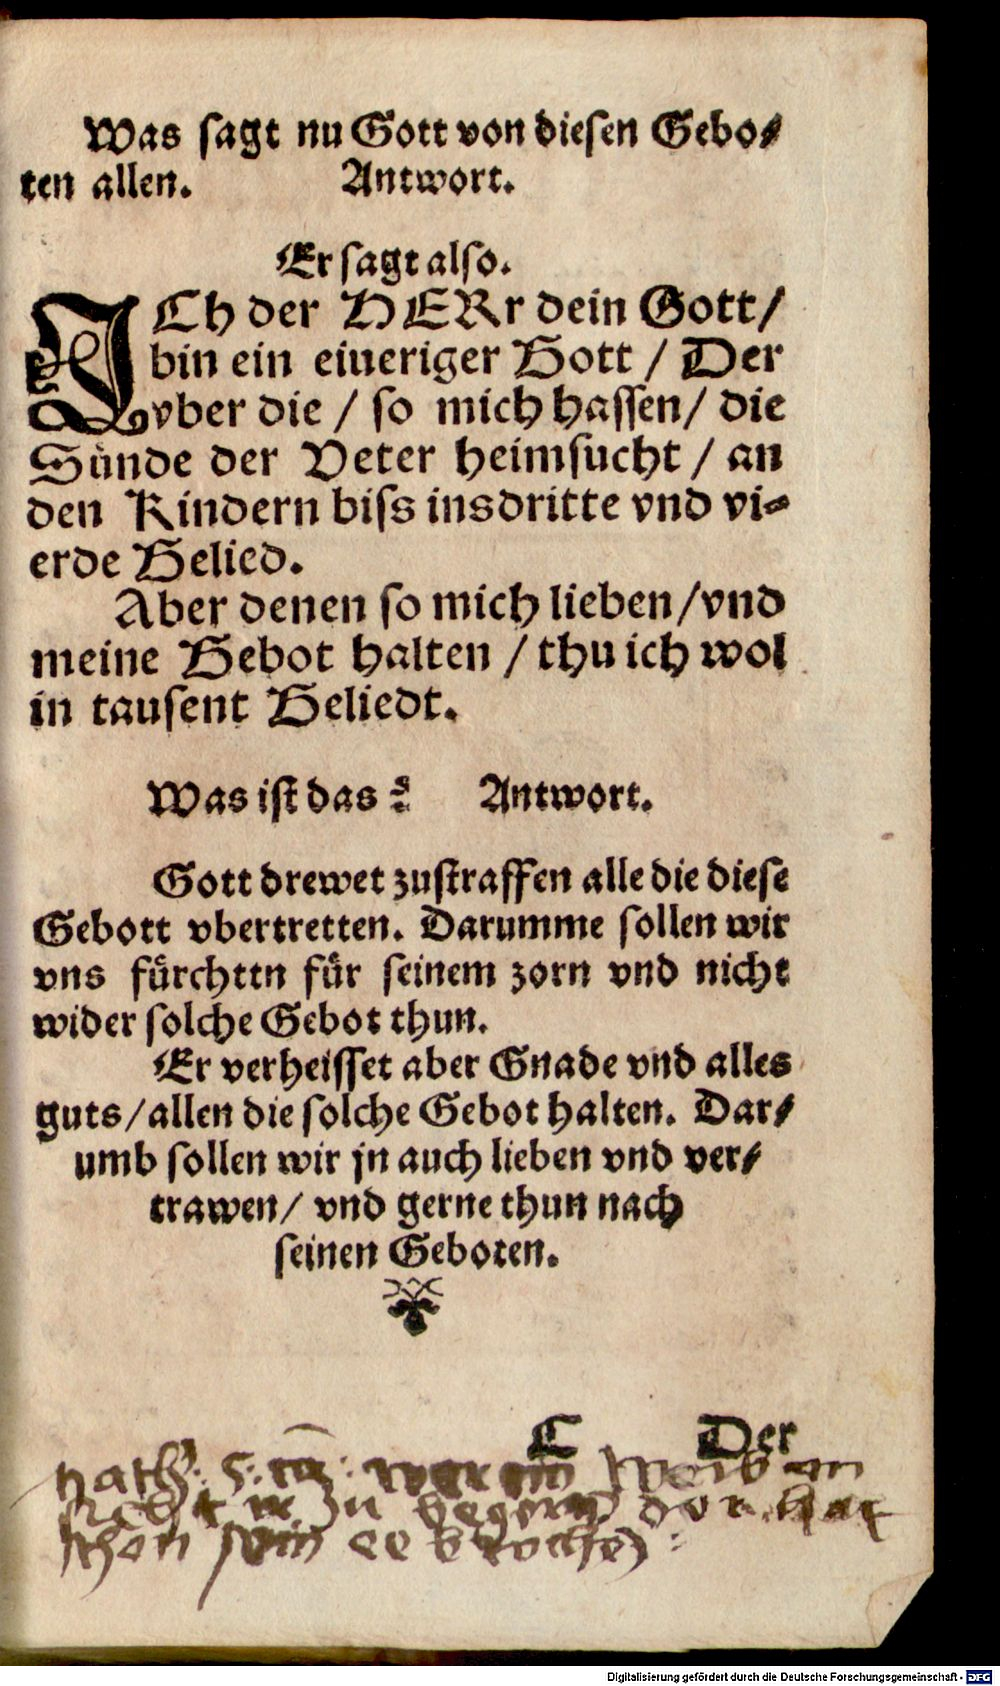 Was sagt nu Gott von diesen Gebo⸗
ten allen. Antwort.
Er sagt also.
ICh der HERr dein Gott/
bin ein eiueriger Gott / Der
vber die / so mich hassen/ die
Sünde der Veter heimsucht / an
den Kindern biss insdritte vnd vi⸗
erde Gelied.
Aber denen so mich lieben /vnd
meine Gebot halten / thu ich wol
in tausent Geliedt.
Was ist das? Antwort.
Gott drewet zustraffen alle die diese
Gebott vbertretten. Darumme sollen wir
vns fürchttn für seinem zorn vnd nicht
wider solche Gebot thun.
Er verheisset aber Gnade vnd alles
guts/allen die solche Gebot halten. Dar⸗
umb sollen wir jn auch lieben vnd ver⸗
trawen/ vnd gerne thun nach
seinen Geboten.
C Der
math: 5: wer ein Weib an
zu der hat
schon sein
Digitalisierung gefördert durch die Deutsche Forschungsgemeinschaft - DFG